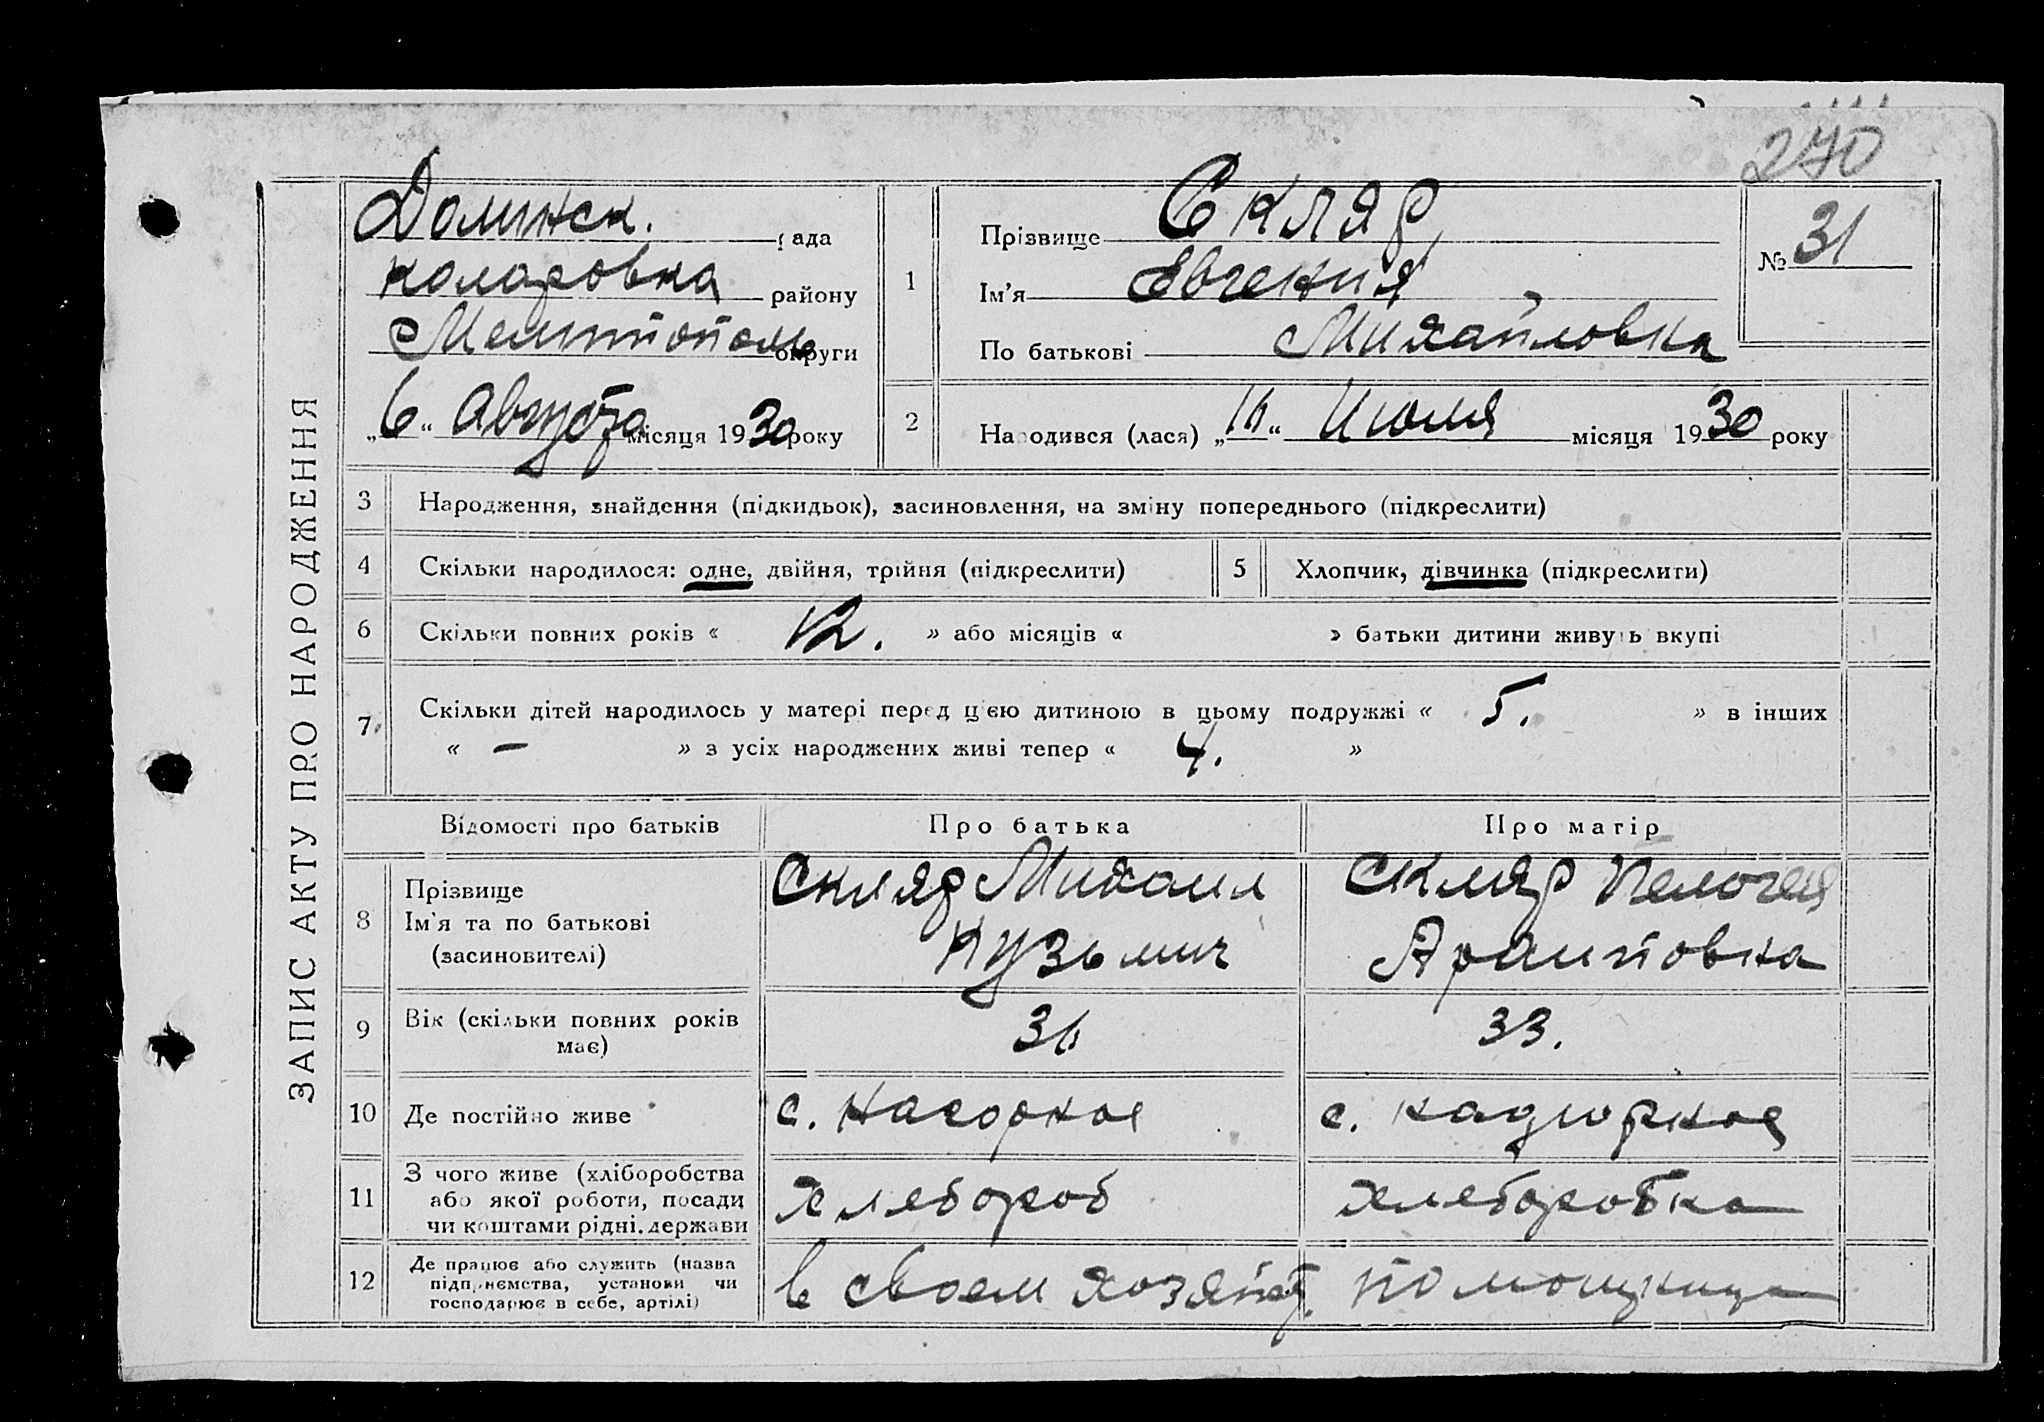 270
ЗАПИС АКТУ ПРО НАРОДЖЕННЯ
Долинск. рада
Коларовка району
Мелитополь округи
„6“ Августа місяця 1930 року
1
Прізвище Скляр
Ім'я Евгения
По батькові Михайловка
№ 31
2
Народився (лася) „16“ Июля місяця 1930 року
3 Народження, знайдення (підкидьок), засиновлення, на зміну попереднього (підкреслити)
4 Скільки народилося: одне, двійня, трійня (підкреслити)
5 Хлопчик, дівчинка (підкреслити)
6 Скільки повних років « 12. » або місяців « » батьки дитини живуть вкупі
7 Скільки дітей народилось у матері перед цією дитиною в цьому подружжі « 5. » в інших
« – » з усіх народжених живі тепер « 4. »
Відомості про батьків Про батька Про матір
8
Прізвище
Ім'я та по батькові
(засиновителі)
Скляр Михаил
Кузьмич
Скляр Пелогея
Архиповка
9
Вік (скільки повних років
має)
36
33.
10 Де постійно живе
с. Нагорное
с. Надгорное
11
З чого живе (хліборобства
або якої роботи, посади
чи коштами рідні, держави
Хлебороб
Хлеборобка
12
Де працює або служить (назва
підприємства, установи чи
господарює в себе, артілі)
в своем хозяйст.
помощница